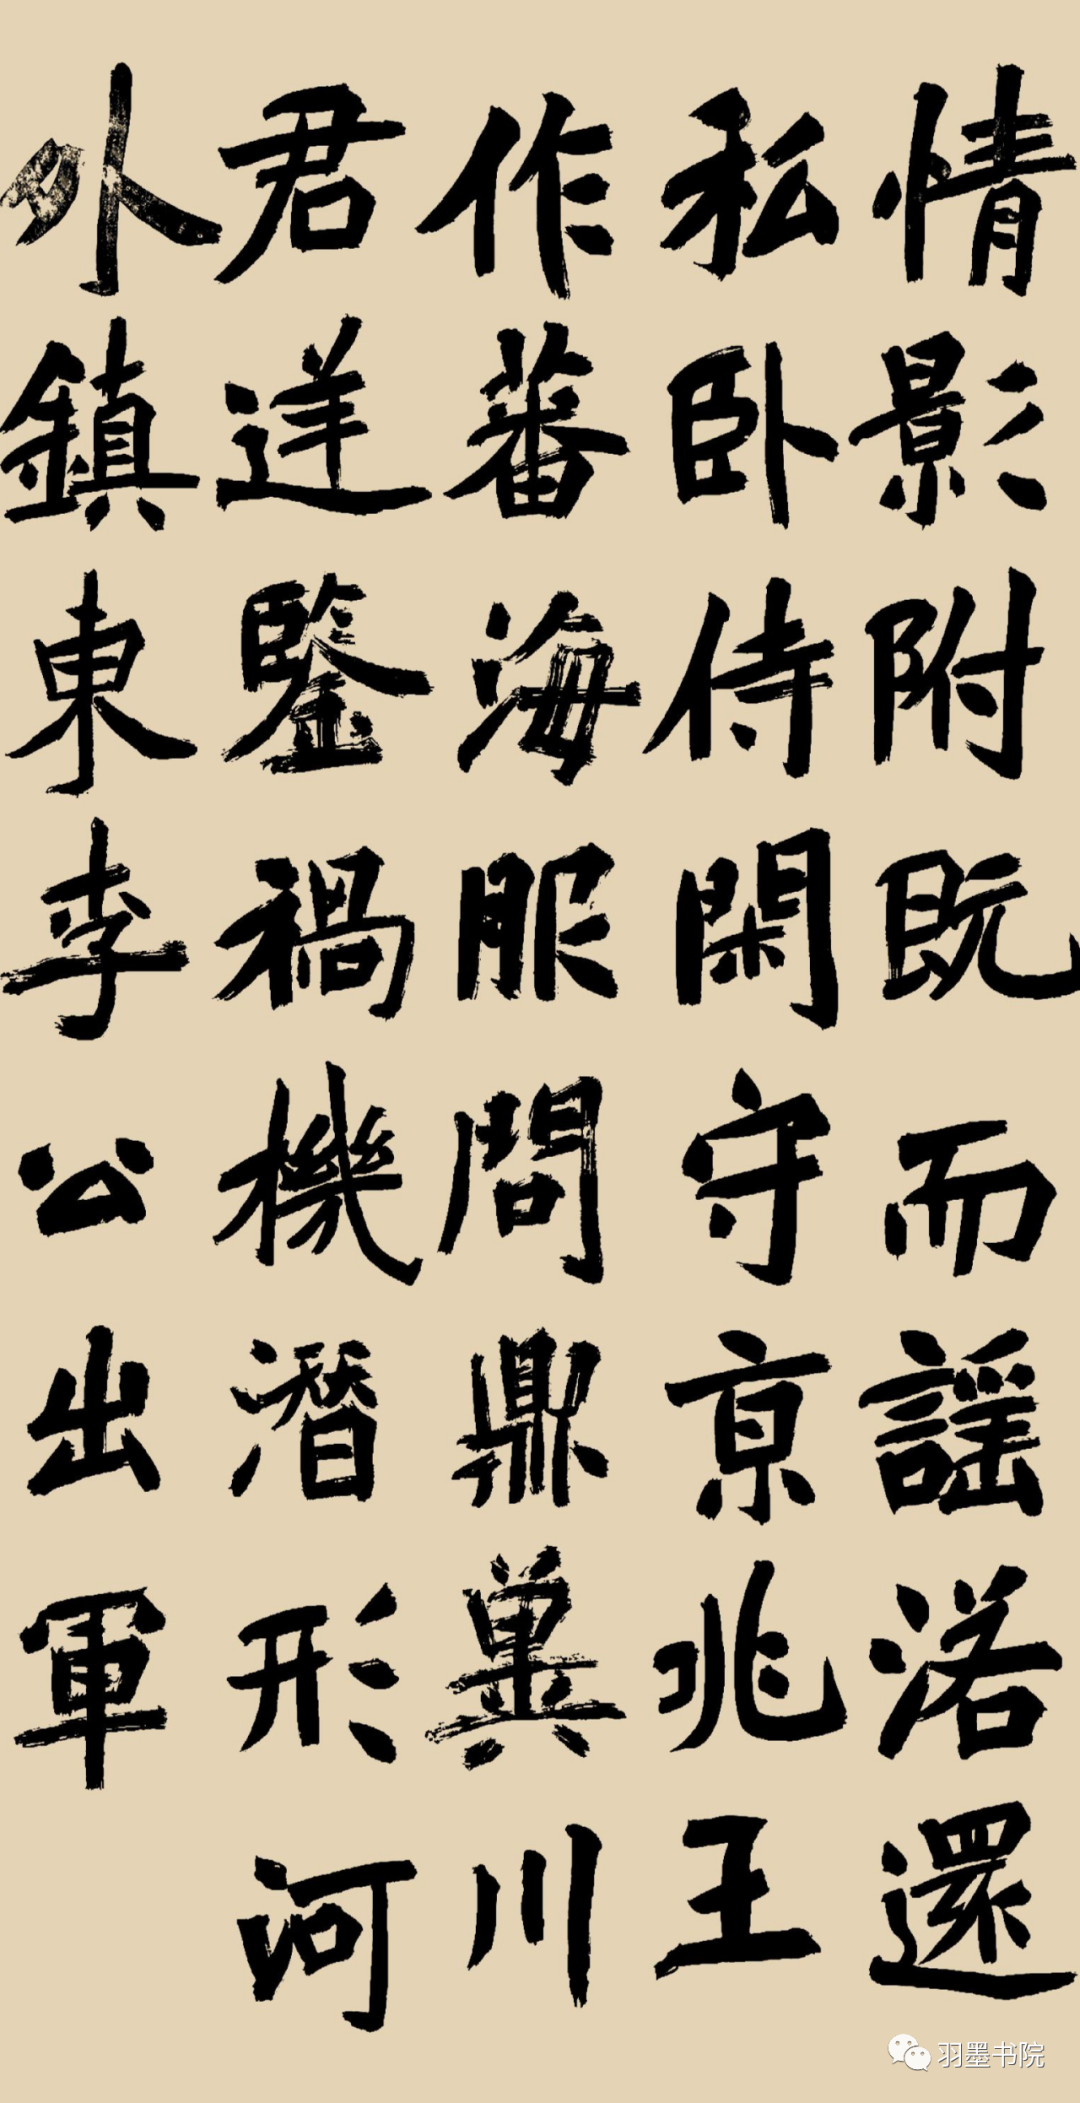 情影附既而謡洛還
私卧侍閑守京兆王
作蕃海服問鼎冀川
君逆鑒禍機潛形河
外鎮東李公出軍
羽墨书院